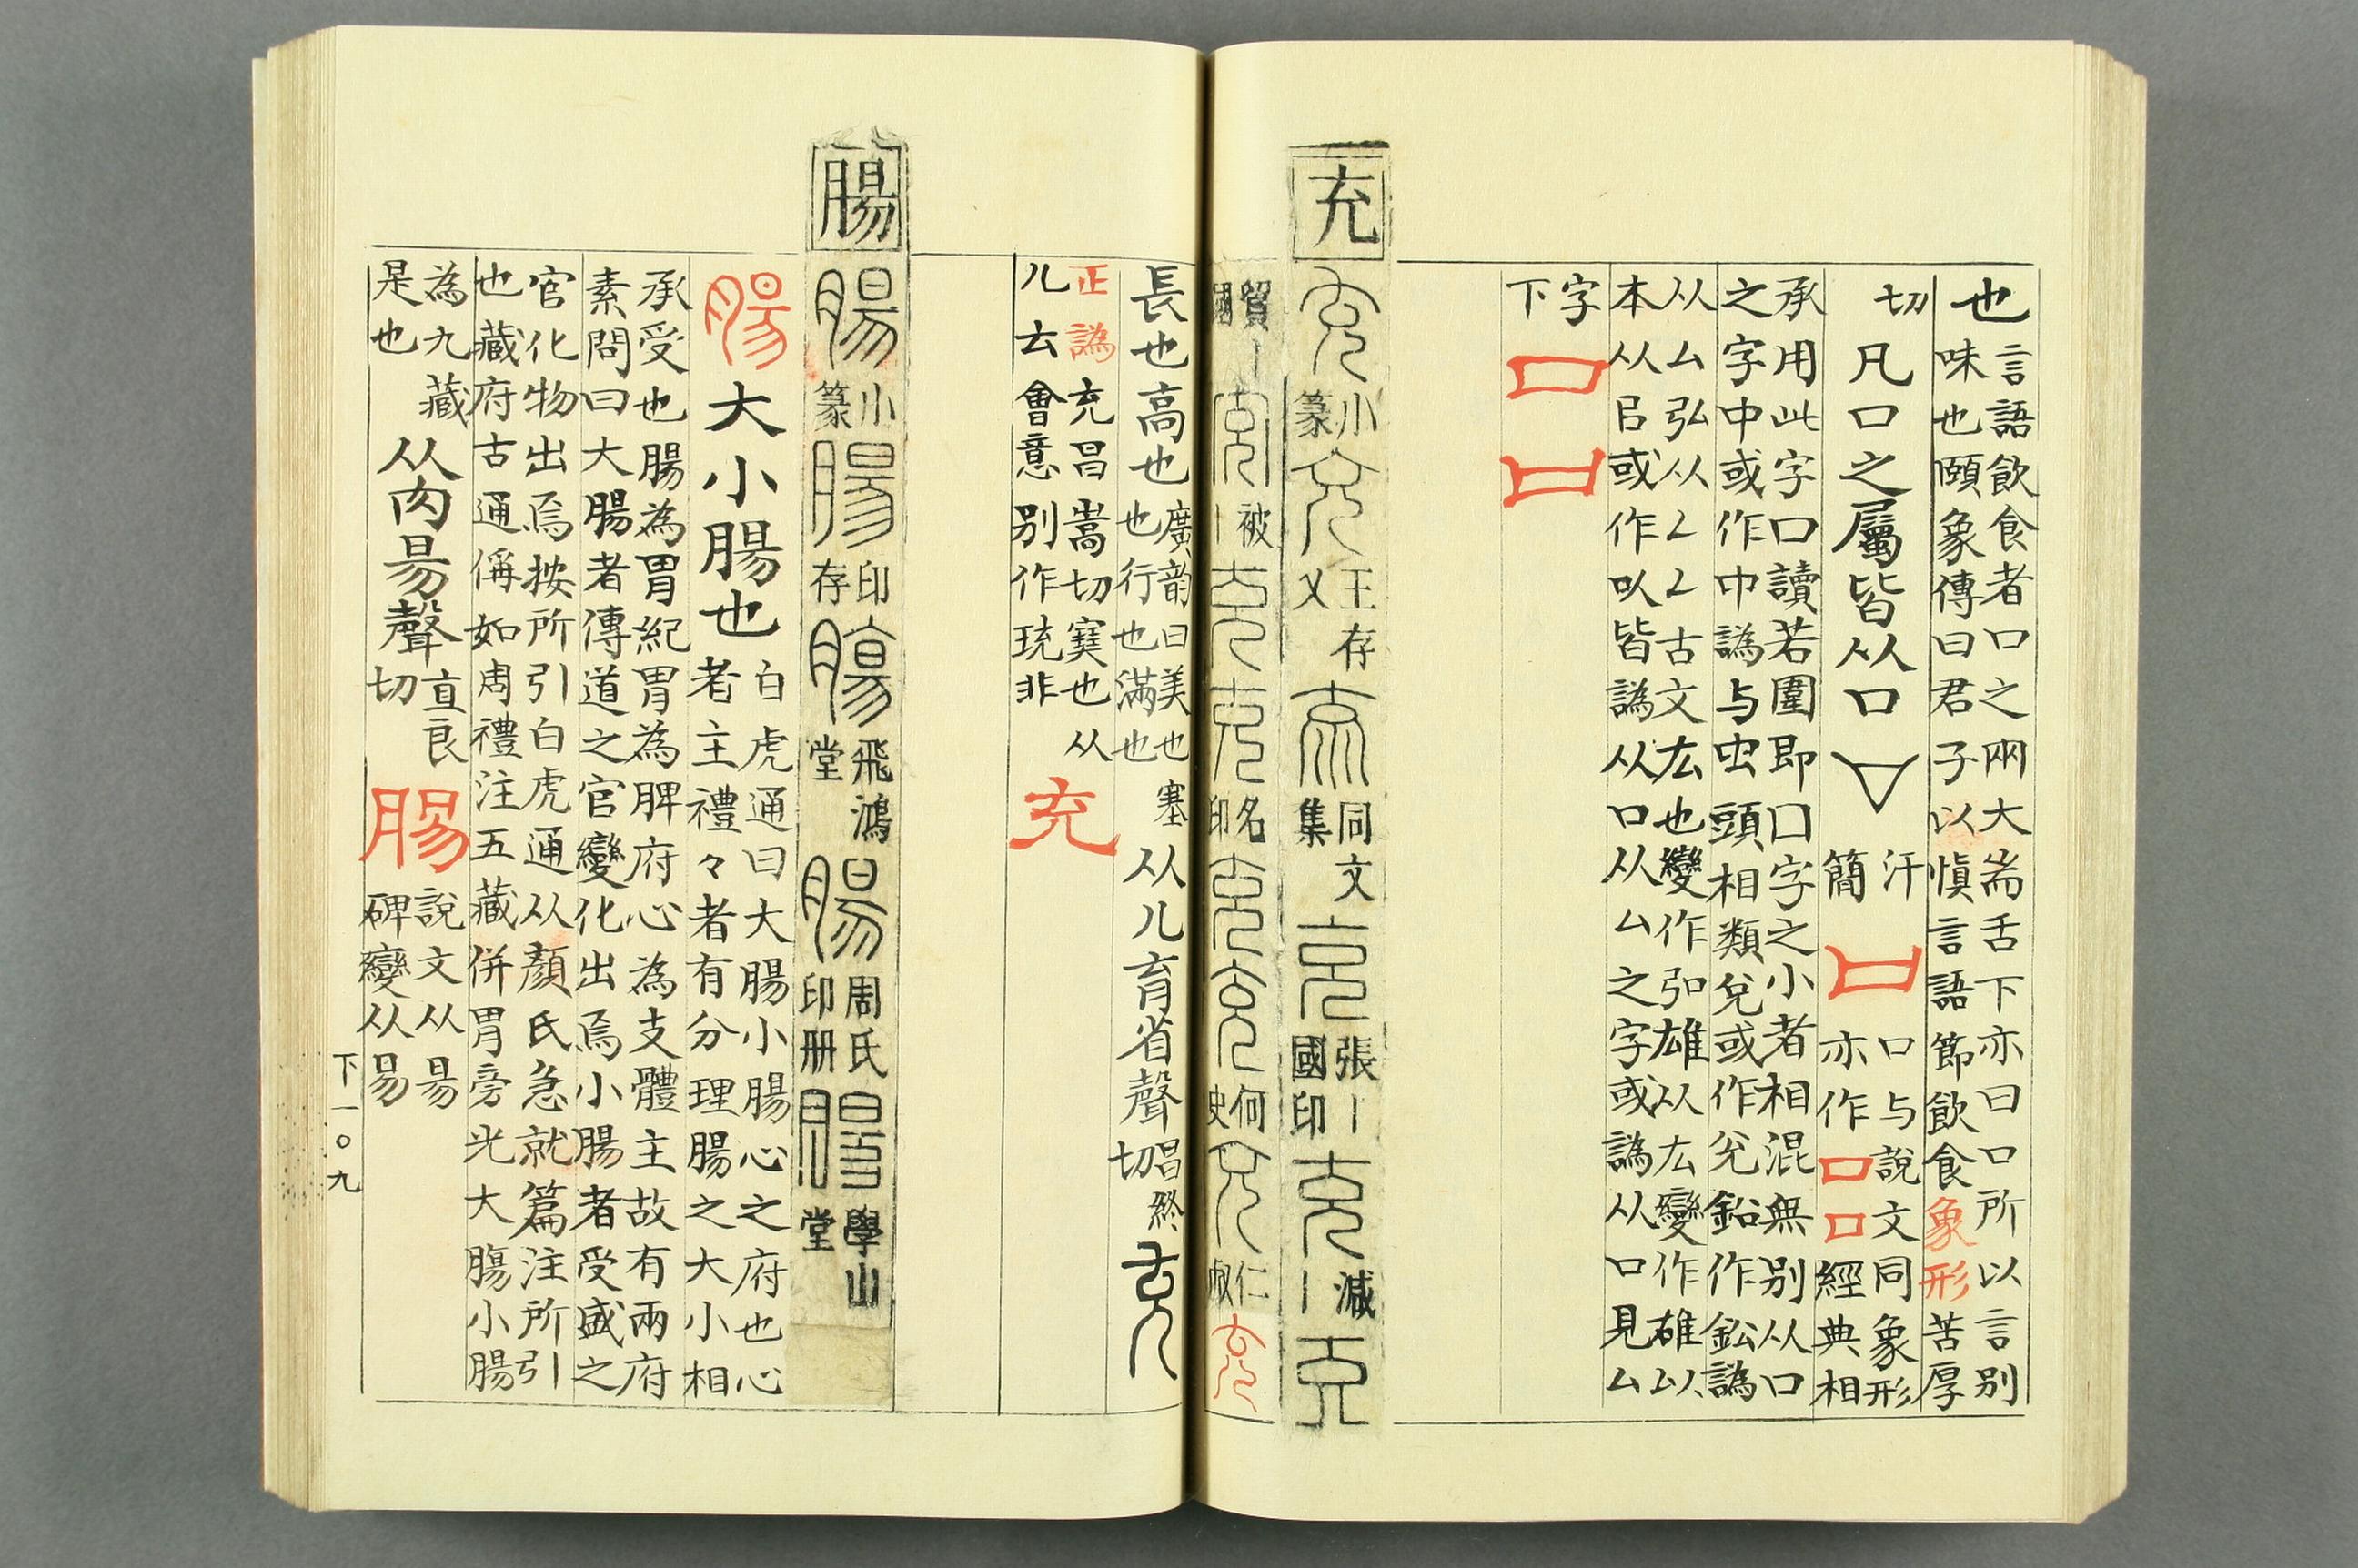 也言語飲食者口之兩大耑舌下亦曰口所以言别
味也頤象傳曰君子以慎言語節飲食象形苦厚
切凡口之屬皆从口汗簡口与說文同象形
亦作口口經典相
承用此字口讀若圍即囗字之小者相混無别从口
之字中或作巾譌与虫頭相類兌或作兊鉛作鈆譌
从厶弘从乚乚古文厷也變作弘雄从厷變作雄以
本从㠯或作㕥皆譌从口从厶之字或譌从口見厶
字
下
口
口
充
充小篆充王存乂充同文集充張丨國印充減丨充
充被丨充充名印充充何充仁充
長也高也廣韵曰美也塞
也行也滿也
从儿育省聲昌終切充
正譌充昌嵩切窦也从
儿云會意别作珫非
充
腸
腸小篆腸印存腸飛鴻堂腸周氏印册腸學山堂
腸大小腸也白虎通曰大腸小腸心之府也心
者主禮々者有分理腸之大小相
承受也腸為胃紀胃為脾府心為支體主故有兩府
素問曰大腸者傳道之官變化出焉小腸者受盛之
官化物出焉按所引白虎通从顏氏急就篇注所引
也藏府古通偁如周禮注五藏併胃旁光大膓小腸
為九藏
是也
从肉昜聲直良切腸說文从昜
碑變从易
下一〇九